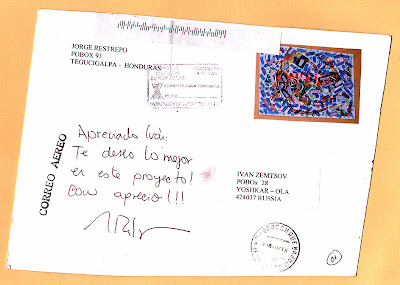 JORGE RESTREPO
POBOX 93
TEGUCIGALPA - HONDURAS
CORREO AEREO
Apreciado Iván:
Te deseo lo mejor
en este proyecto!
Con aprecio!!!
IVAN ZEMTSOV
POBOx 28
YOSHKAR - OLA
424037 RUSSIA
01